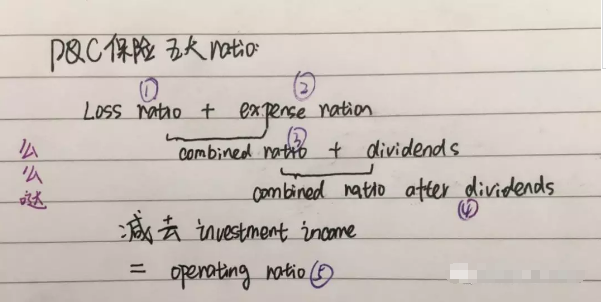 P&C保险 五大ratio:
① ②
Loss ratio + expense ration
③
combined ratio + dividends
combined ratio after dividends
④
减去 investment income
= operating ratio ⑤
么
么
哒